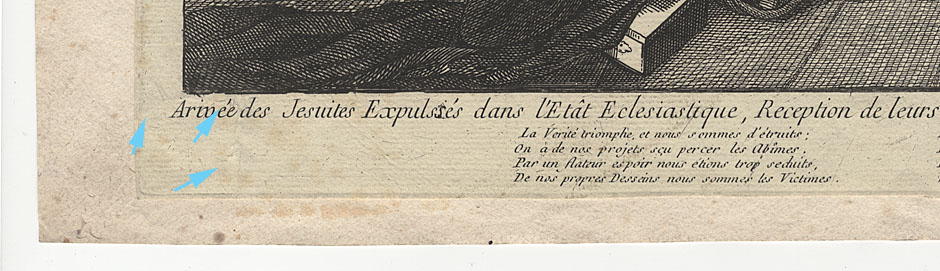 Arivée des Jesuites Expulssés dans l'Etât Eclesiastique, Reception de leurs
La Verité triomphe, et nous sommes d'étruits;
On à de nos projets sçu percer les Abîmes.
Par un flateur espoir nous étions trop seduits,
De nos propres Desseins nous sommes les Victimes.